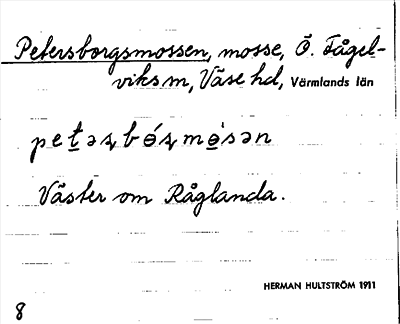 Petersborgsmossen, mosse, Ö. Fågel-
viks m, Väse hd, Värmlands län
Väster om Råglanda.
HERMAN HULTSTRÖM 1911
8